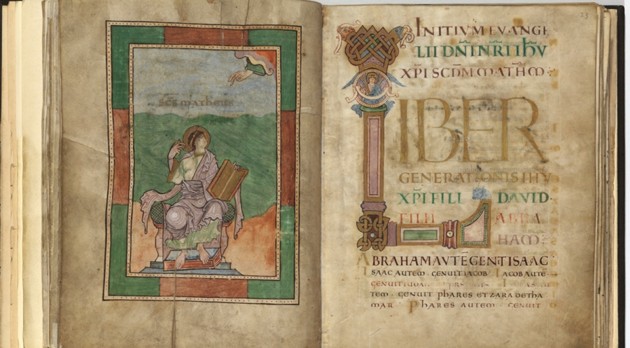 SCS MATHEUS
INITIUM EVANGE
LII DNI NRI IHV
XPI SCDM MATHM:
LIBER
GENERATIONIS IHV
XPI FILI DAVID
FILII ABRA
HAM:
ABRAHAM AUTE GENUIT ISAAC
ISAAC AUTEM GENUIT IACOB IACOB AUTE
GENUIT
TEM GENUIT PHARES ET ZARA DE THA
MAR PHARES AUTEM GENUIT